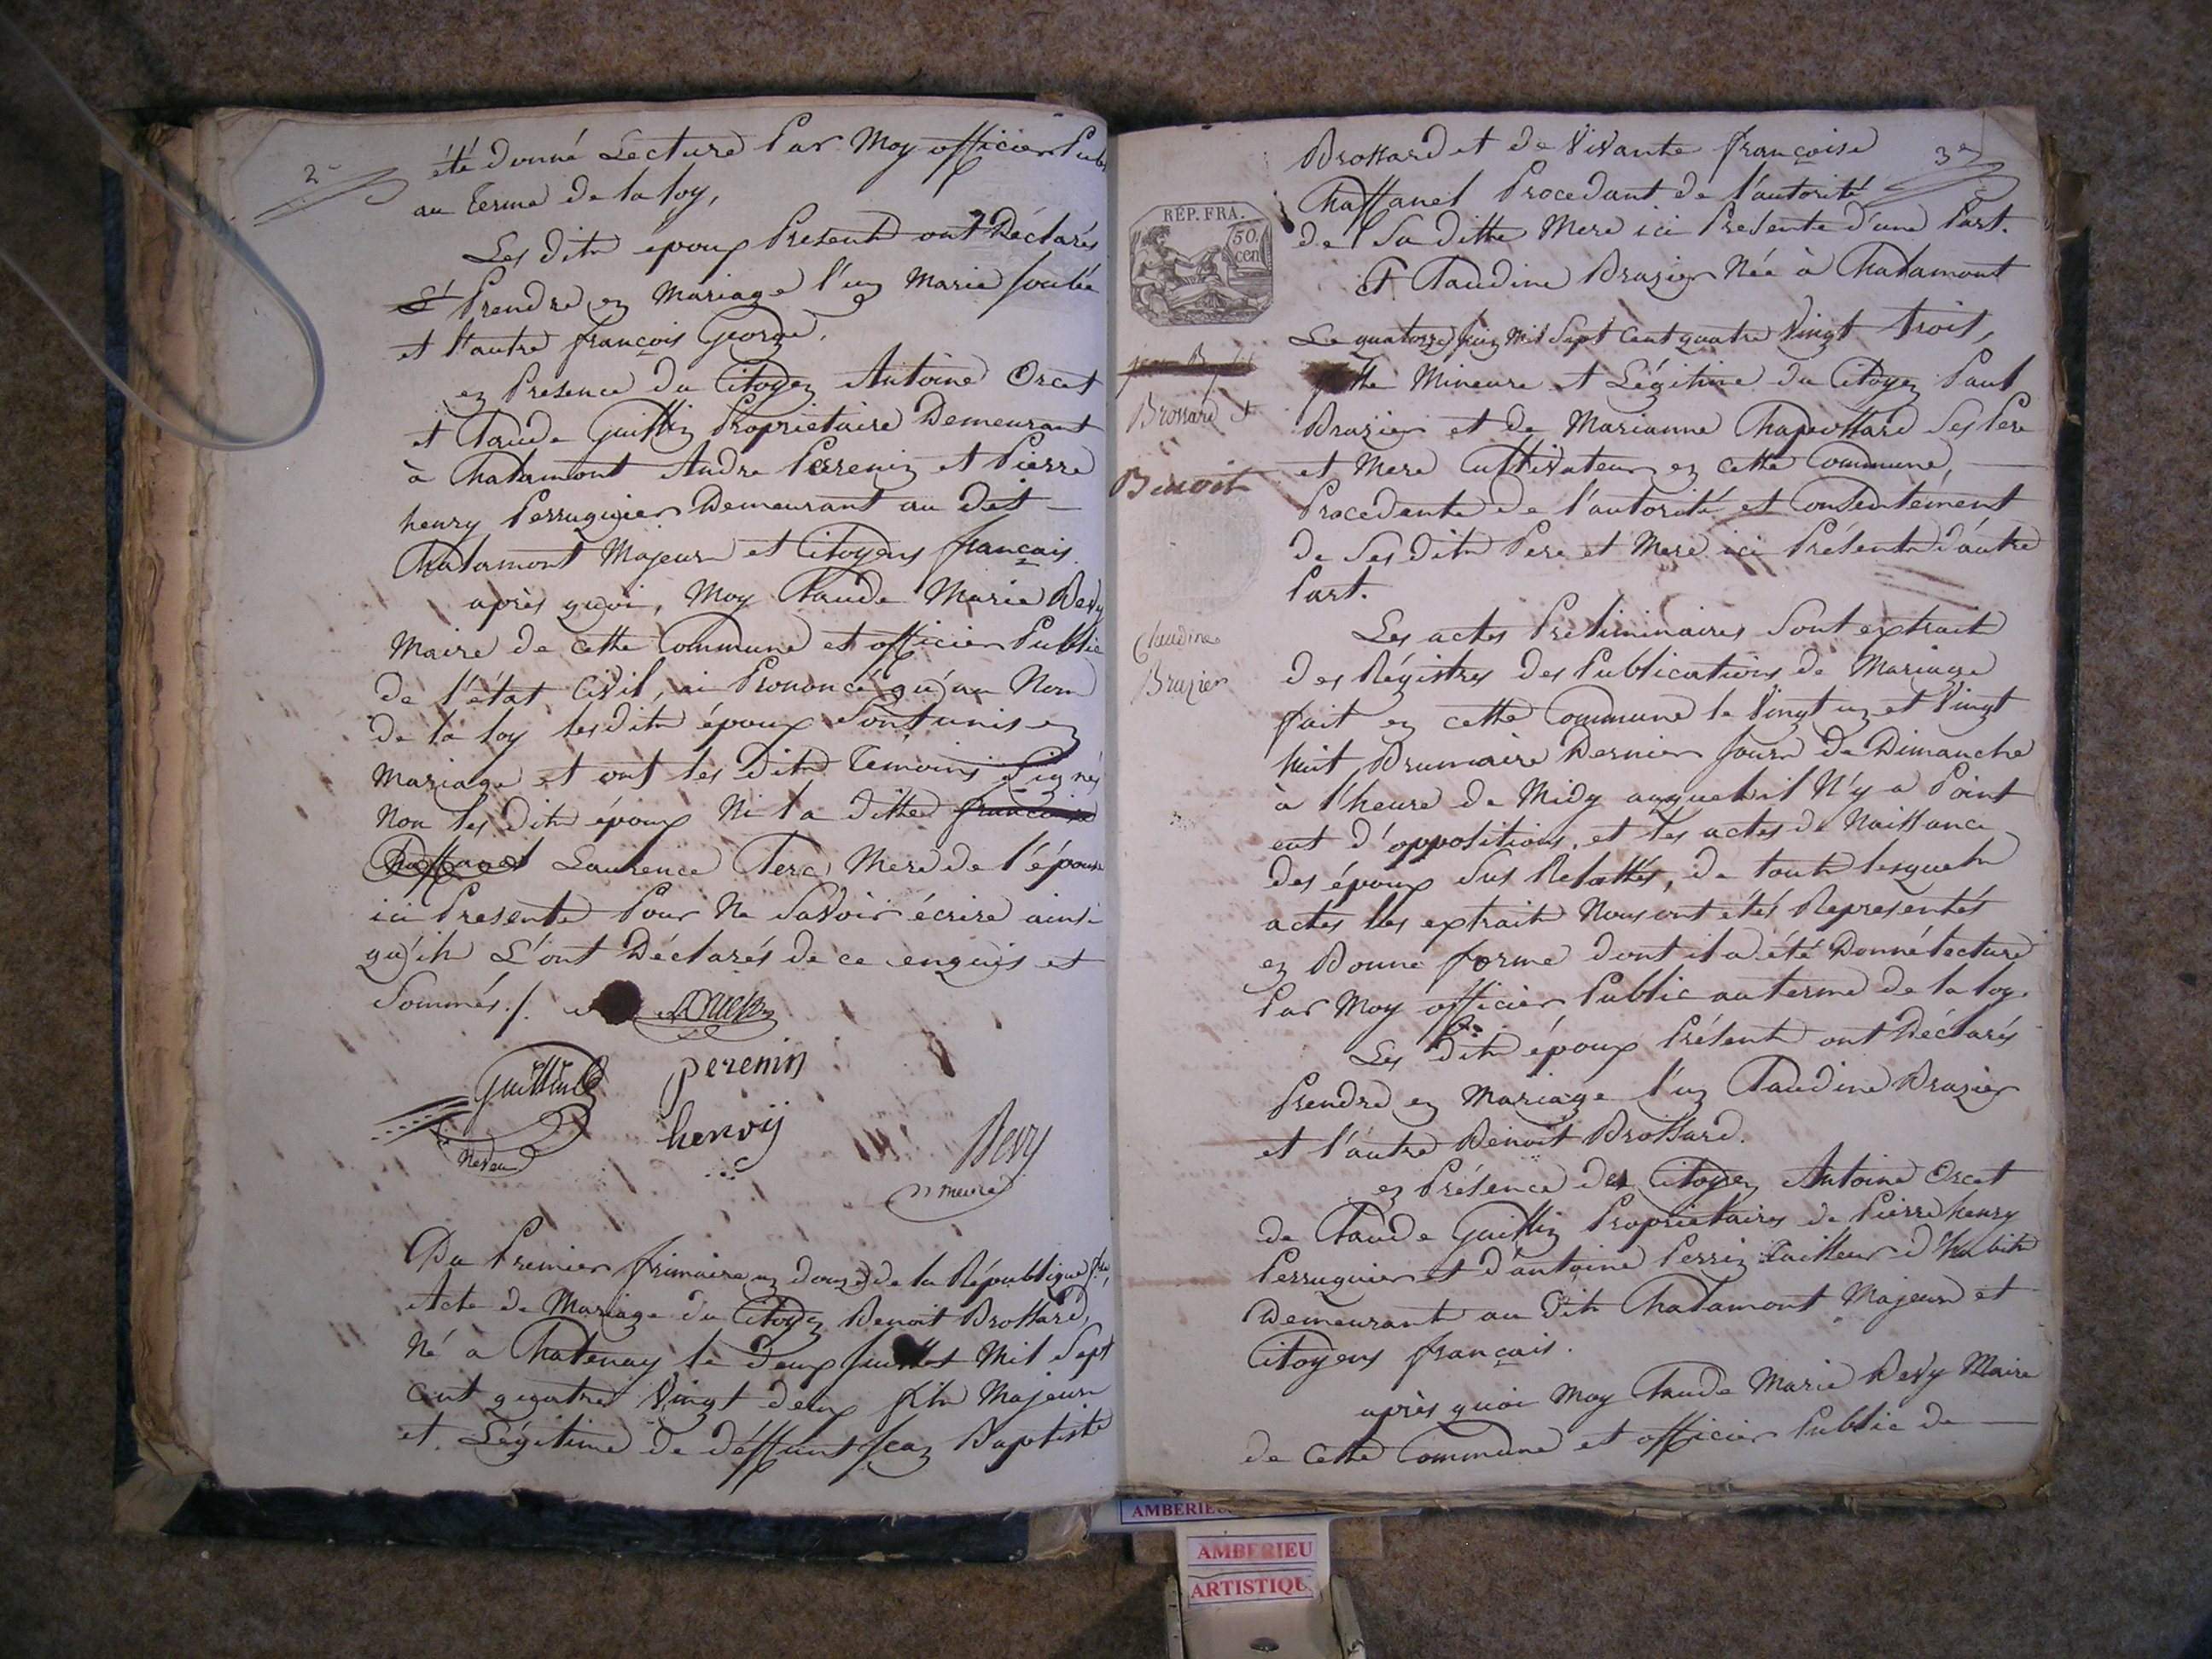 2e
été donné Lecture Par Moy officier Pub
au terme de la loy,
Les dits époux Présents ont Déclarés
Prendre en Mariage l'un Marie
et l'autre françois George.
en Présence du Citoyen Antoine Orcet
et Claude Guillin Propriétaire Demeurant
à Chalamont Andre Perenin et Pierre
henry Perruquier Demeurant au dit
Chalamont Majeurs et Citoyens français.
après quoi, Moy Claude Marie Devy
Maire de cette Commune et officier Public
de l'état Civil, ai Prononcé qu'au Nom
de la loy les dits époux Sont unis en
Mariage et ont les dits Témoins Signés
Non les dits époux Ni la ditte françoise
Chaffanel Laurence Mere de l'épouse
ici Presente Pour Ne Savoir écrire ainsi
qu'ils L'ont Déclarés de ce enquis et
Sommés ./.
Guillin
perenin
henry
Neveu
Devy
meire
Du Premier frimaire an douze de la République fse,
Acte de Mariage du Citoyen Benoit Brossard,
Né a Chatenay le deux juillet Mil Sept
cent quatre Vingt deux fils Majeur
et Légitime de déffunt Jean Baptiste
3e
Brossard et de Vivante françoise
Chaffanel Procedant de l'autorité
de Sa ditte Mere ici Presente d'une Part.
Et Claudine Brazier Née à Chalamont
Le quatorze juin Mil Sept Cent quatre Vingt trois,
fille Mineure et Légitime du Citoyen Paul
Brazier et de Marianne Chapottard Ses Pere
et Mere Cultivateur en cette Commune,
Procedante de l'autorité et Consentement
de Ses dits Pere et Mere ici Présents d'autre
Part.
Les actes Préliminaires Sont extrait
des Régistres des Publications de Mariage
fait en cette Commune le Vingt un et Vingt
huit Brumaire Dernier Jours de Dimanche
à l'heure de Midy auquel il N'y a Point
eut d'oppositions, et les actes de Naissance
des époux Sus Relattés, de tout lesquels
actes les extrait Nous ont étés Representés
en Bonne forme dont il a été Donné lecture
Par Moy officier Public au terme de la loy.
Les dits époux Présents ont Déclarés
Prendre en Mariage l'un Claudine Brazier
et l'autre Benoit Brossard.
en Présence des Citoyens Antoine Orcet
de Claude Guillin Propriétaires de Pierre henry
Perruquier et d'antoine Perrin tailleur d'habits
Demeurant au dit Chalamont Majeurs et
Citoyens français.
après quoi Moy Claude Marie Devy Maire
de cette Commune et officier Public de
RÉP. FRA.
50.
cen
Brossard et
Benoit
Claudine
Brazier
AMBERIEU
AMBERIEU
ARTISTIQU